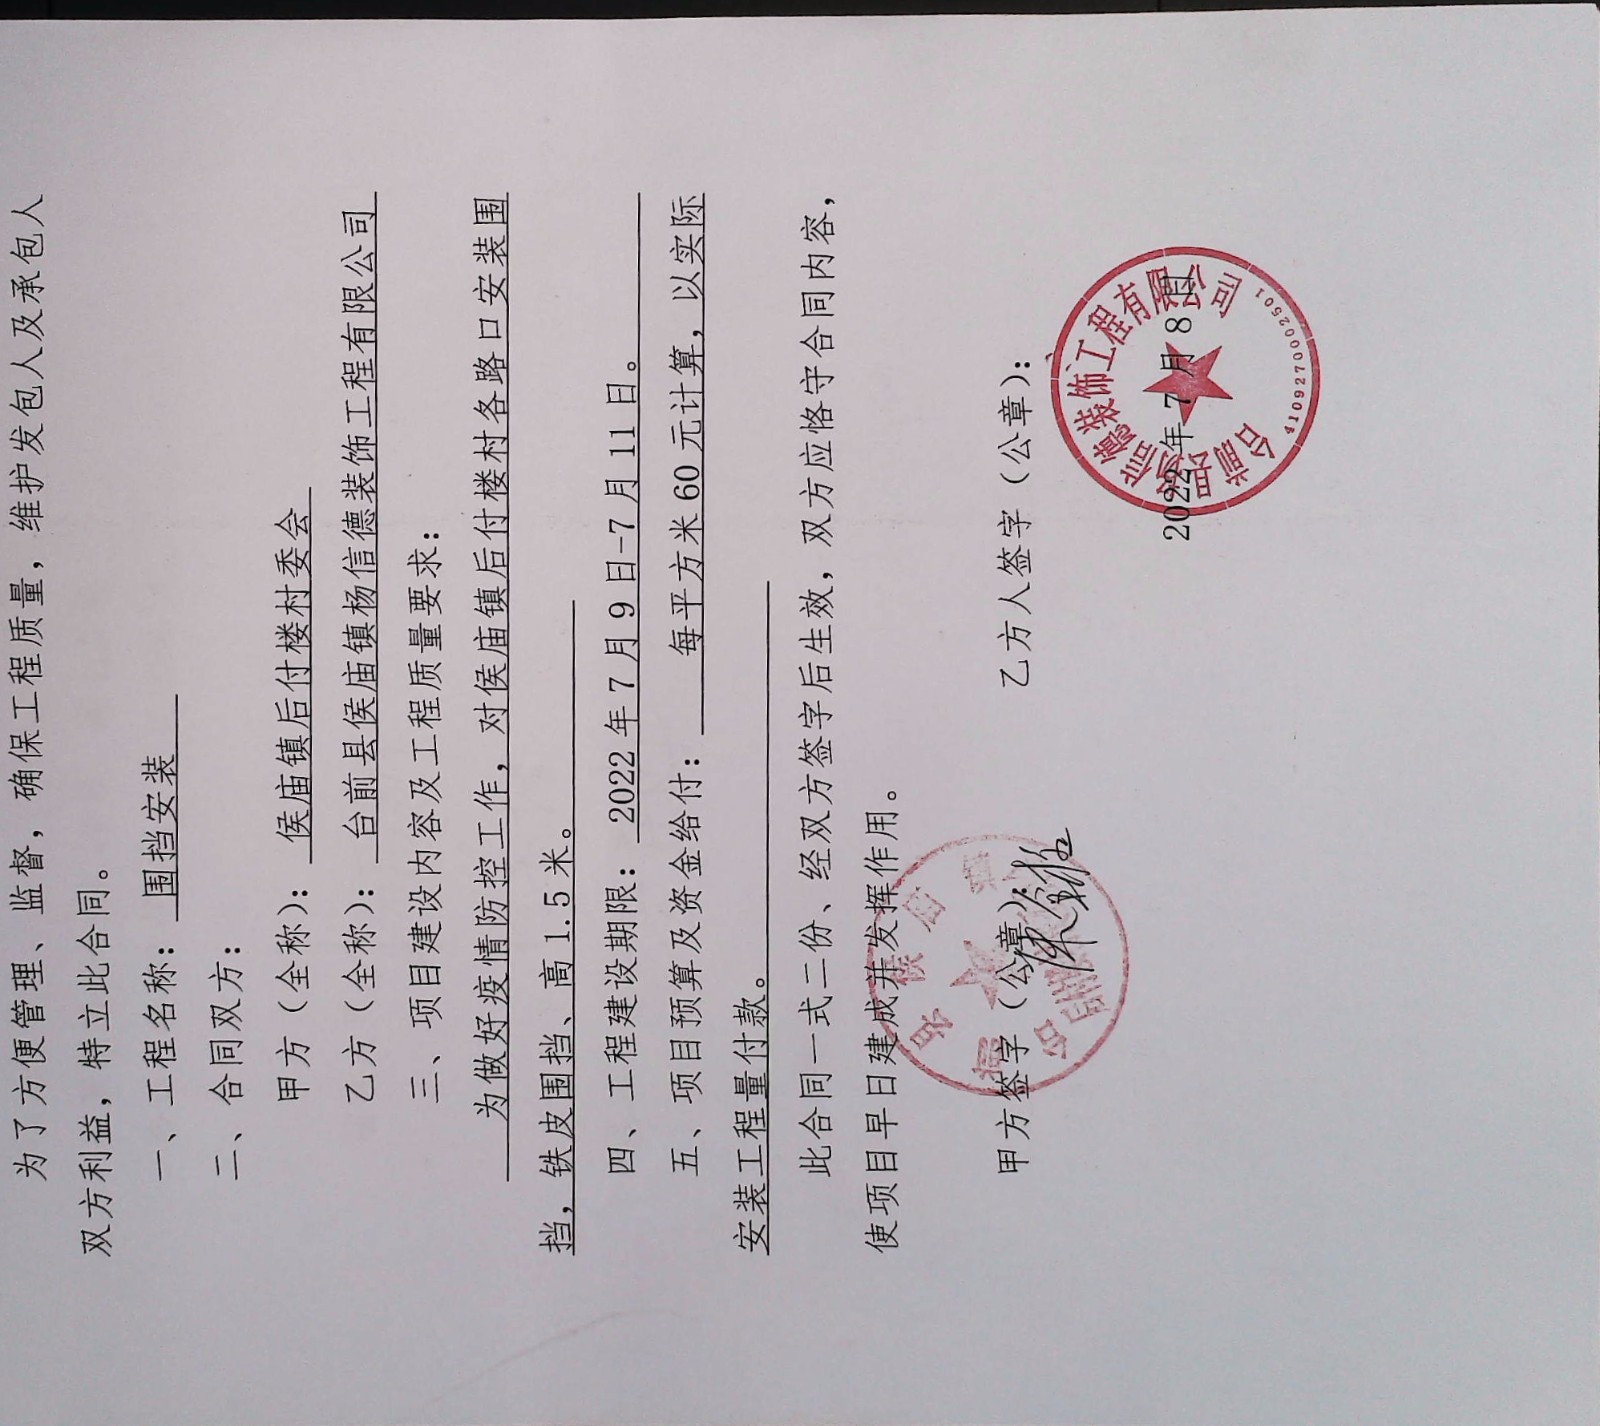 为了方便管理、监督，确保工程质量，维护发包人及承包人
双方利益，特立此合同。
一、工程名称： 围挡安装
二、合同双方：
甲方（全称）： 侯庙镇后付楼村委会
乙方（全称）： 台前县侯庙镇杨信德装饰工程有限公司
三、项目建设内容及工程质量要求：
为做好疫情防控工作，对侯庙镇后付楼村各路口安装围
挡，铁皮围挡、高1.5米。
四、工程建设期限： 2022年7月9日-7月11日。
五、项目预算及资金给付： 每平方米60元计算，以实际
安装工程量付款。
此合同一式二份、经双方签字后生效，双方应恪守合同内容，
使项目早日建成并发挥作用。
甲方签字（公章）： 乙方人签字（公章）：
2022年7月8日
信德装饰工程有限公司
4109270002501